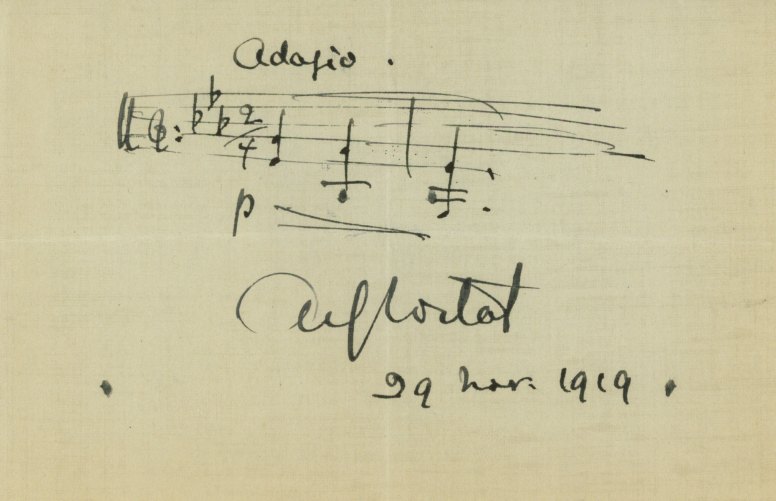 Adagio.
2
4
p
Alf Cortot
29 nov. 1919.